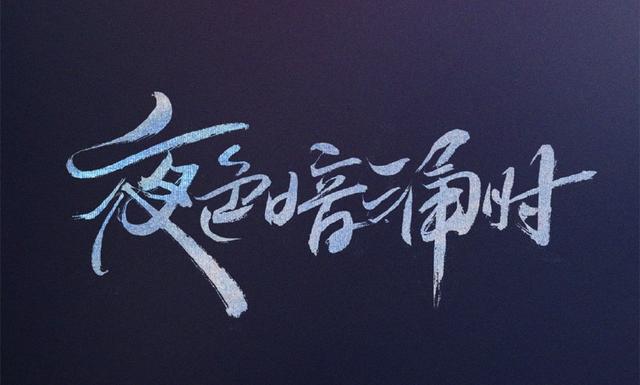 夜色暗涌时